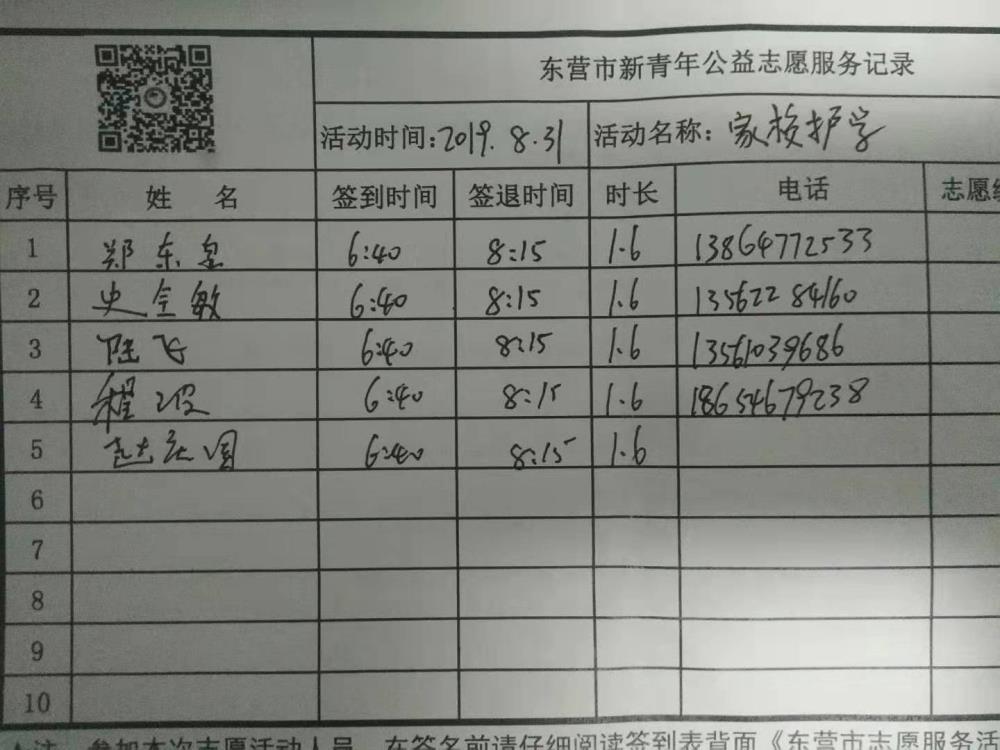 东营市新青年公益志愿服务记录
活动时间:2019.8.31 活动名称:家校护学
序号 姓 名 签到时间 签退时间 时长 电话 志愿
1 郑东 6:40 8:15 1.6 13864772533
2 史全敏 6:40 8:15 1.6 13562284160
3 陆飞 6:40 8:15 1.6 13561039686
4 程 6:40 8:15 1.6 18654679238
5 赵庆国 6:40 8:15 1.6
6
7
8
9
10
注 参加本次志愿活动人员 在签名前请仔细阅读签到表背面《东营市志愿服务活